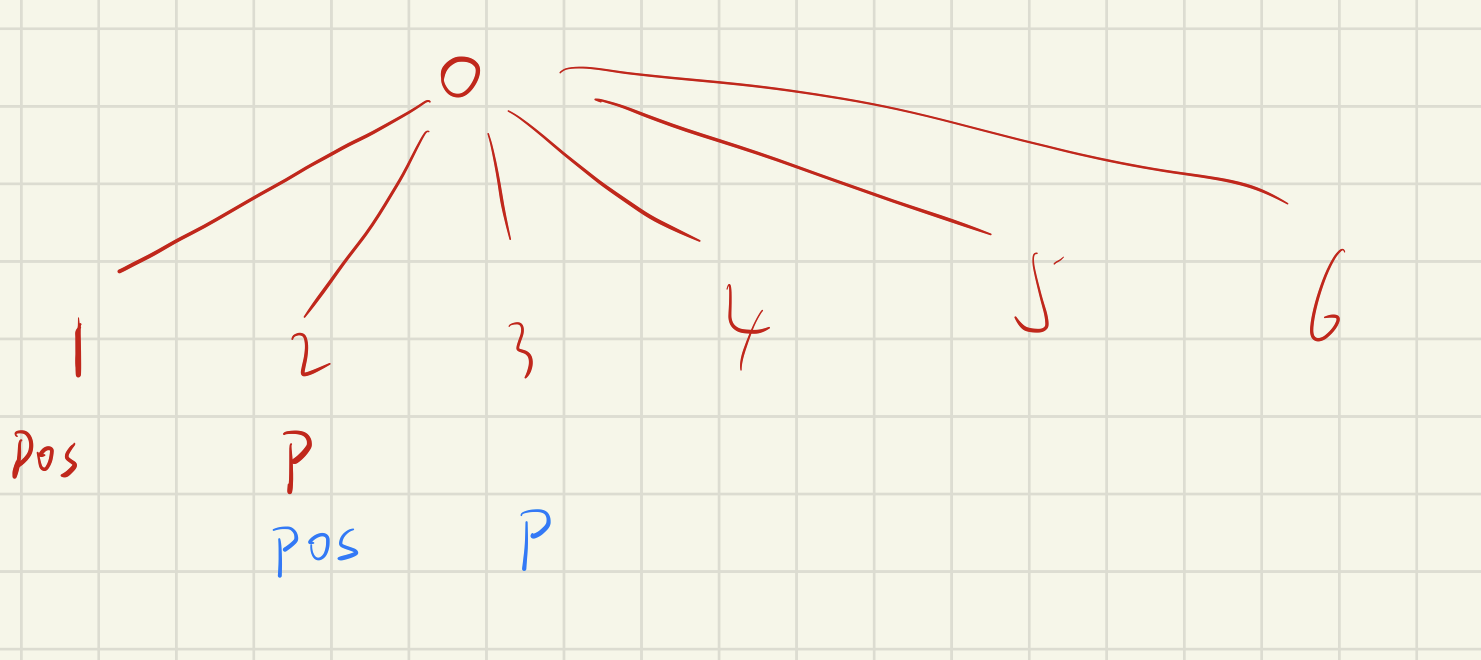 0
1 2 3 4 5 6
Pos P
Pos P